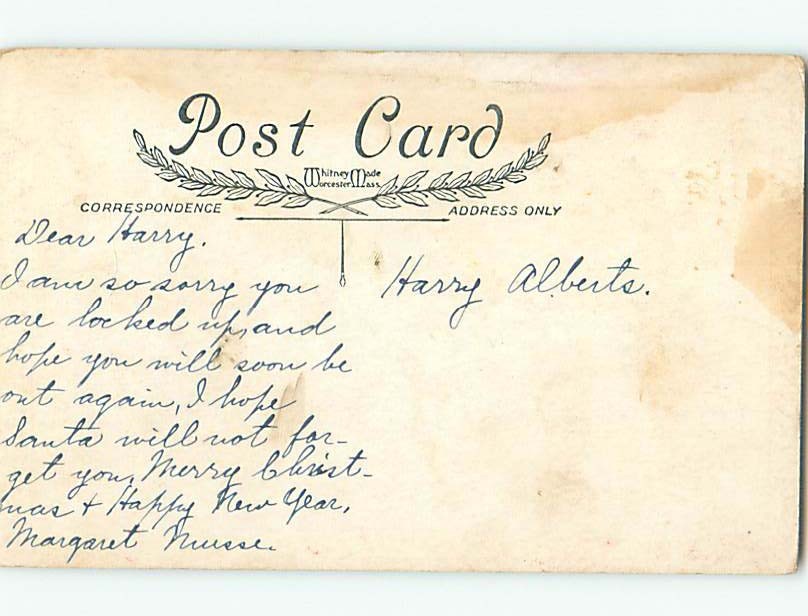 Post Card
Whitney Made
Worcester Mass.
CORRESPONDENCE
ADDRESS ONLY
Dear Harry.
I am so sorry you
are locked up, and
hope you will soon be
out again, I hope
Santa will not for-
get you. Merry Christ-
mas + Happy New Year.
Margaret
Harry Alberts.